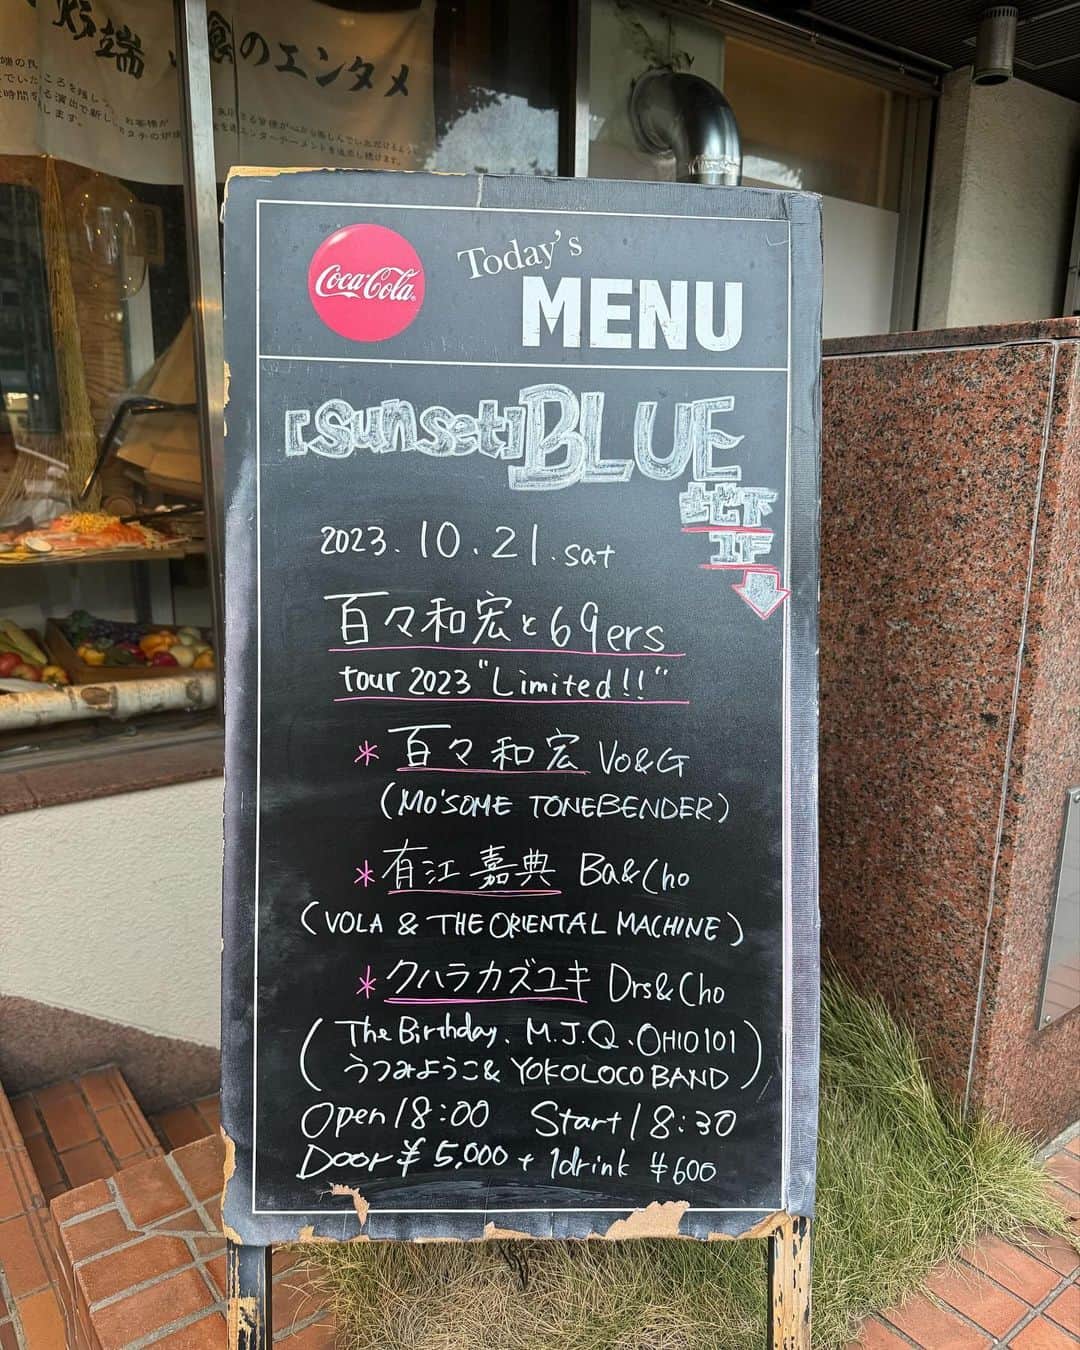 炉端 食のエンタメ
Coca-Cola
Today's
MENU
[sunset] BLUE
地下
1F
2023.10.21.sat
百々和宏と69ers
tour 2023 "Limited!!"
* 百々和宏 Vo&G
(MO'SOME TONEBENDER)
* 有江嘉典 Ba&Cho
(VOLA & THE ORIENTAL MACHINE)
* クハラカズユキ Drs&Cho
(The Birthday、M.J.Q、OHIO101
うつみようこ& YOKOLOCO BAND)
Open 18:00 Start 18:30
Door ¥5,000 + 1drink ¥600